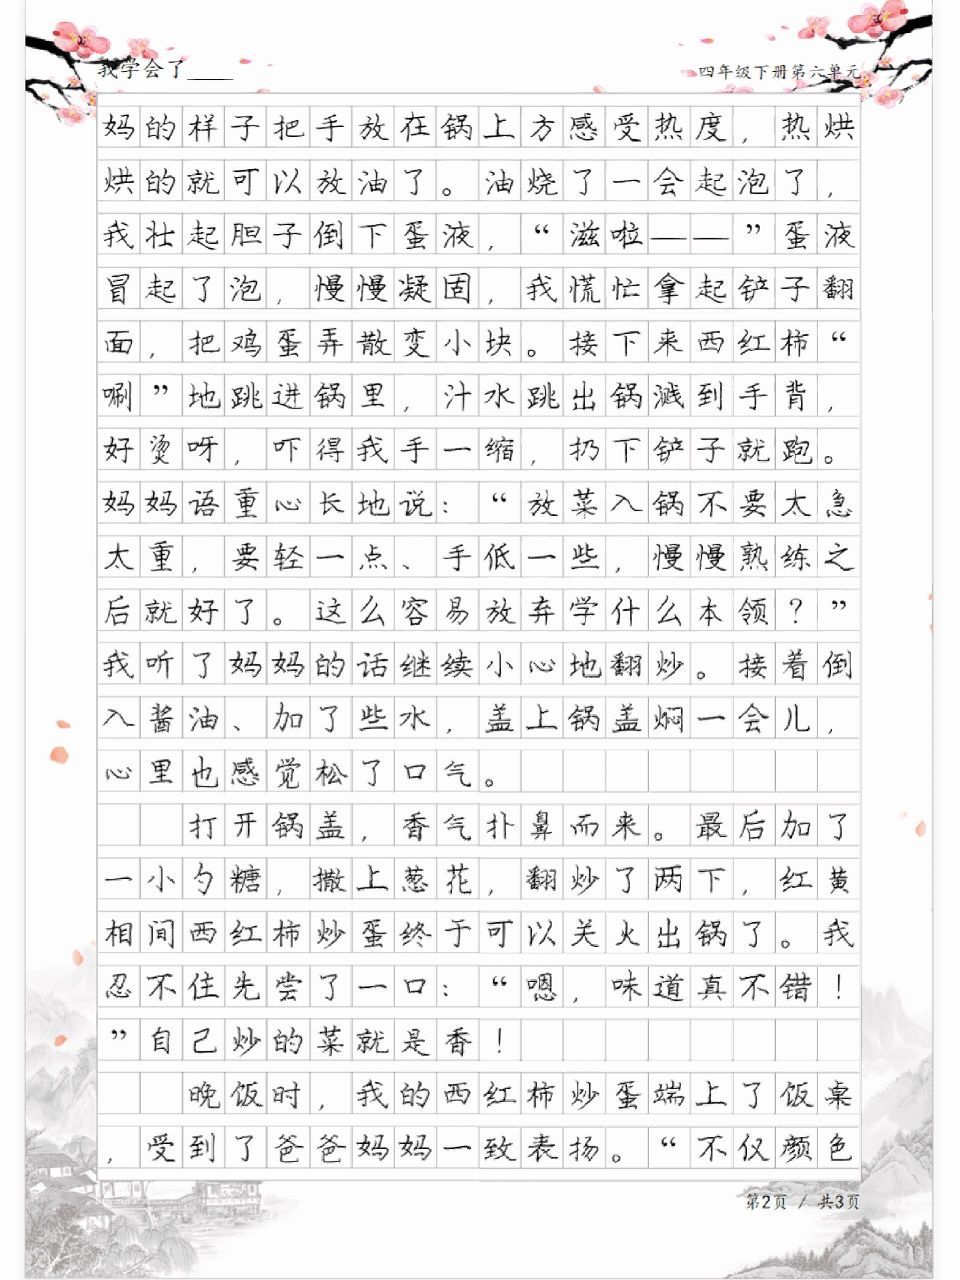 我学会了____
四年级下册第六单元
妈的样子把手放在锅上方感受热度，热烘
烘的就可以放油了。油烧了一会起泡了，
我壮起胆子倒下蛋液，“滋啦——”蛋液
冒起了泡，慢慢凝固，我慌忙拿起铲子翻
面，把鸡蛋弄散变小块。接下来西红柿“
唰”地跳进锅里，汁水跳出锅溅到手背，
好烫呀，吓得我手一缩，扔下铲子就跑。
妈妈语重心长地说：“放菜入锅不要太急
太重，要轻一点、手低一些，慢慢熟练之
后就好了。这么容易放弃学什么本领？”
我听了妈妈的话继续小心地翻炒。接着倒
入酱油、加了些水，盖上锅盖焖一会儿，
心里也感觉松了口气。
打开锅盖，香气扑鼻而来。最后加了
一小勺糖，撒上葱花，翻炒了两下，红黄
相间西红柿炒蛋终于可以关火出锅了。我
忍不住先尝了一口：“嗯，味道真不错！
”自己炒的菜就是香！
晚饭时，我的西红柿炒蛋端上了饭桌
，受到了爸爸妈妈一致表扬。“不仅颜色
第2页 / 共3页